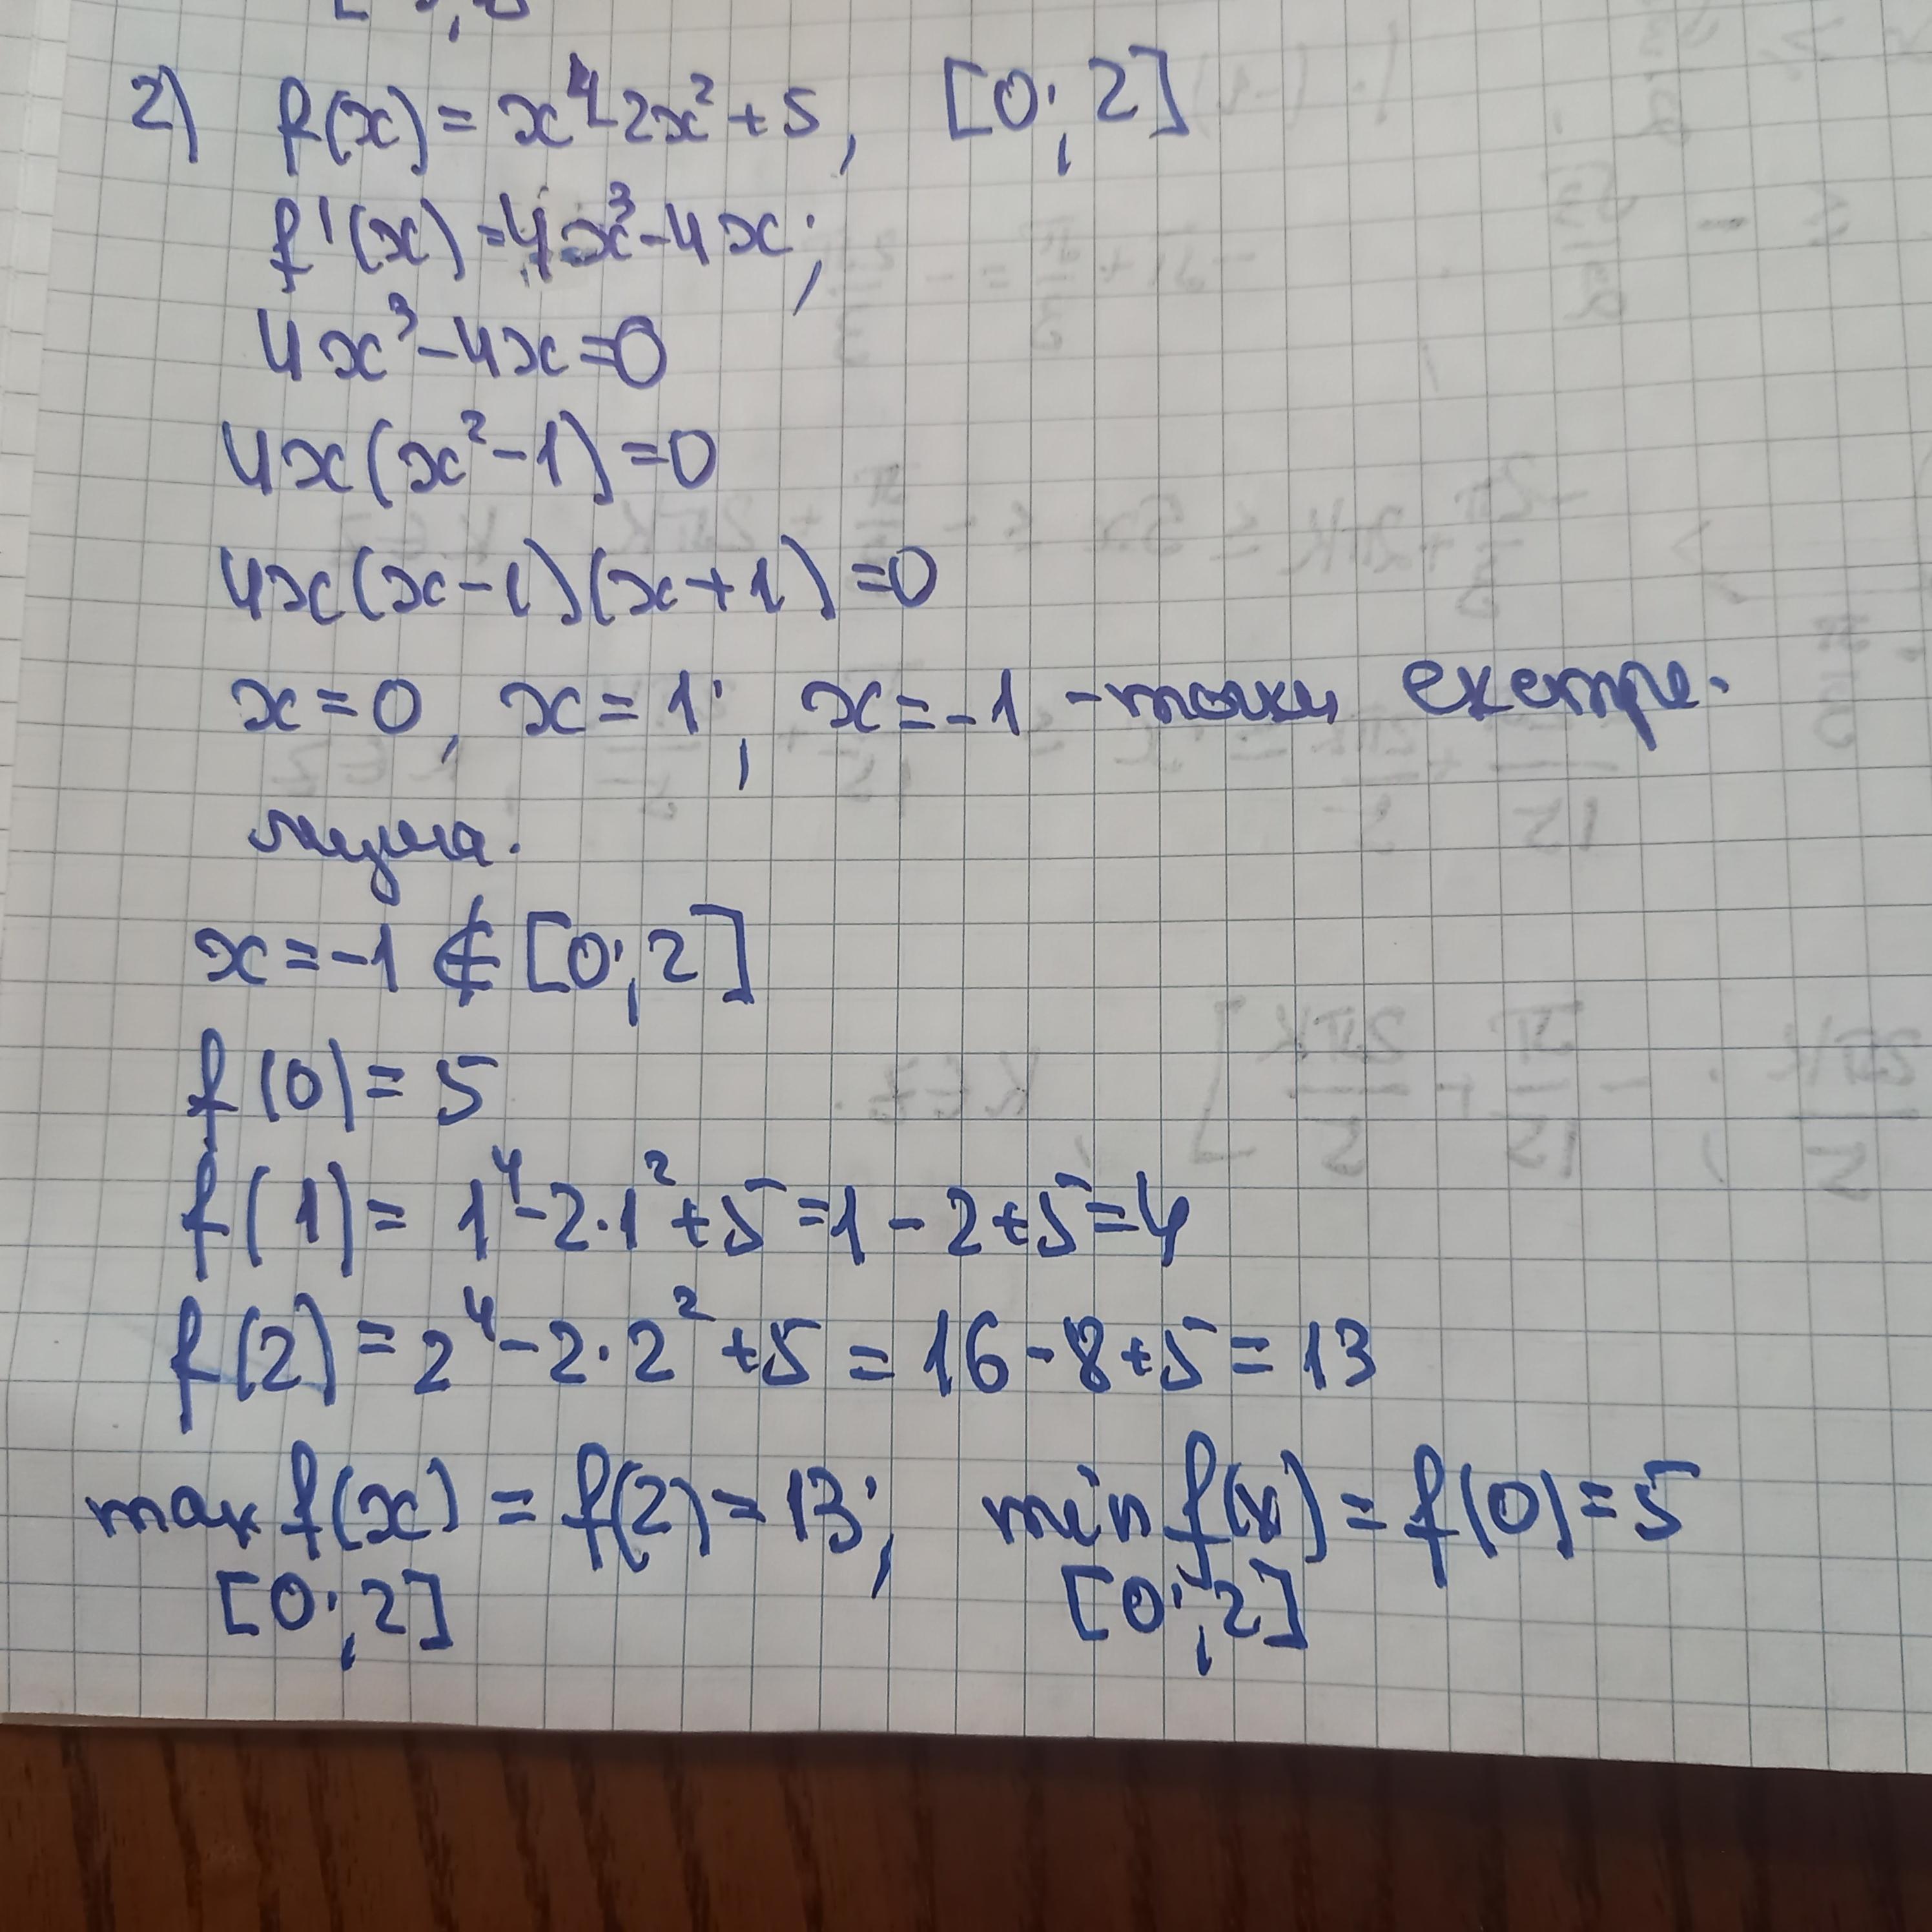 2) f(x) = x⁴-2x²+5, [0; 2]
f'(x) = 4x³-4x;
4x³-4x=0
4x(x²-1)=0
4x(x-1)(x+1)=0
x=0, x=1; x=-1 - точки екстре.
мума.
x=-1 ∉ [0; 2]
f(0) = 5
f(1) = 1⁴-2·1²+5=1-2+5=4
f(2) = 2⁴-2·2²+5 = 16-8+5=13
max f(x) = f(2)=13; min f(x) = f(0)=5
[0; 2] [0; 2]